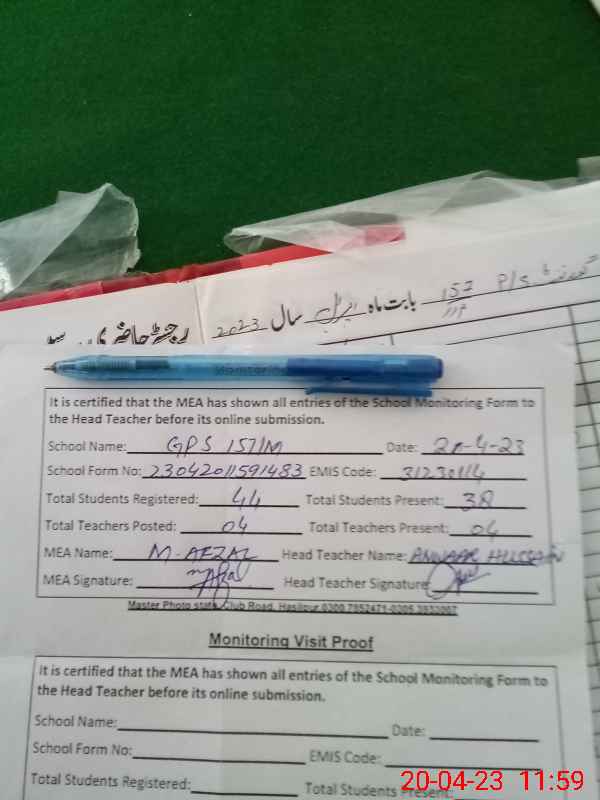 گورنمنٹ P/S 157 بابت ماہ اپریل سال 2023 رجسٹر حاضری
It is certified that the MEA has shown all entries of the School Monitoring Form to
the Head Teacher before its online submission.
School Name: GPS 157/M Date: 20-4-23
School Form No: 23042011591483 EMIS Code: 31230114
Total Students Registered: 44 Total Students Present: 38
Total Teachers Posted: 04 Total Teachers Present: 04
MEA Name: M-AFZAL Head Teacher Name: ANWAAR HUSSAIN
MEA Signature: Head Teacher Signature:
Master Photo state, Club Road, Hasilpur 0300.7852471-0305.3833067
Monitoring Visit Proof
It is certified that the MEA has shown all entries of the School Monitoring Form to
the Head Teacher before its online submission.
School Name: Date:
School Form No: EMIS Code:
Total Students Registered: Total Students Present:
20-04-23 11:59